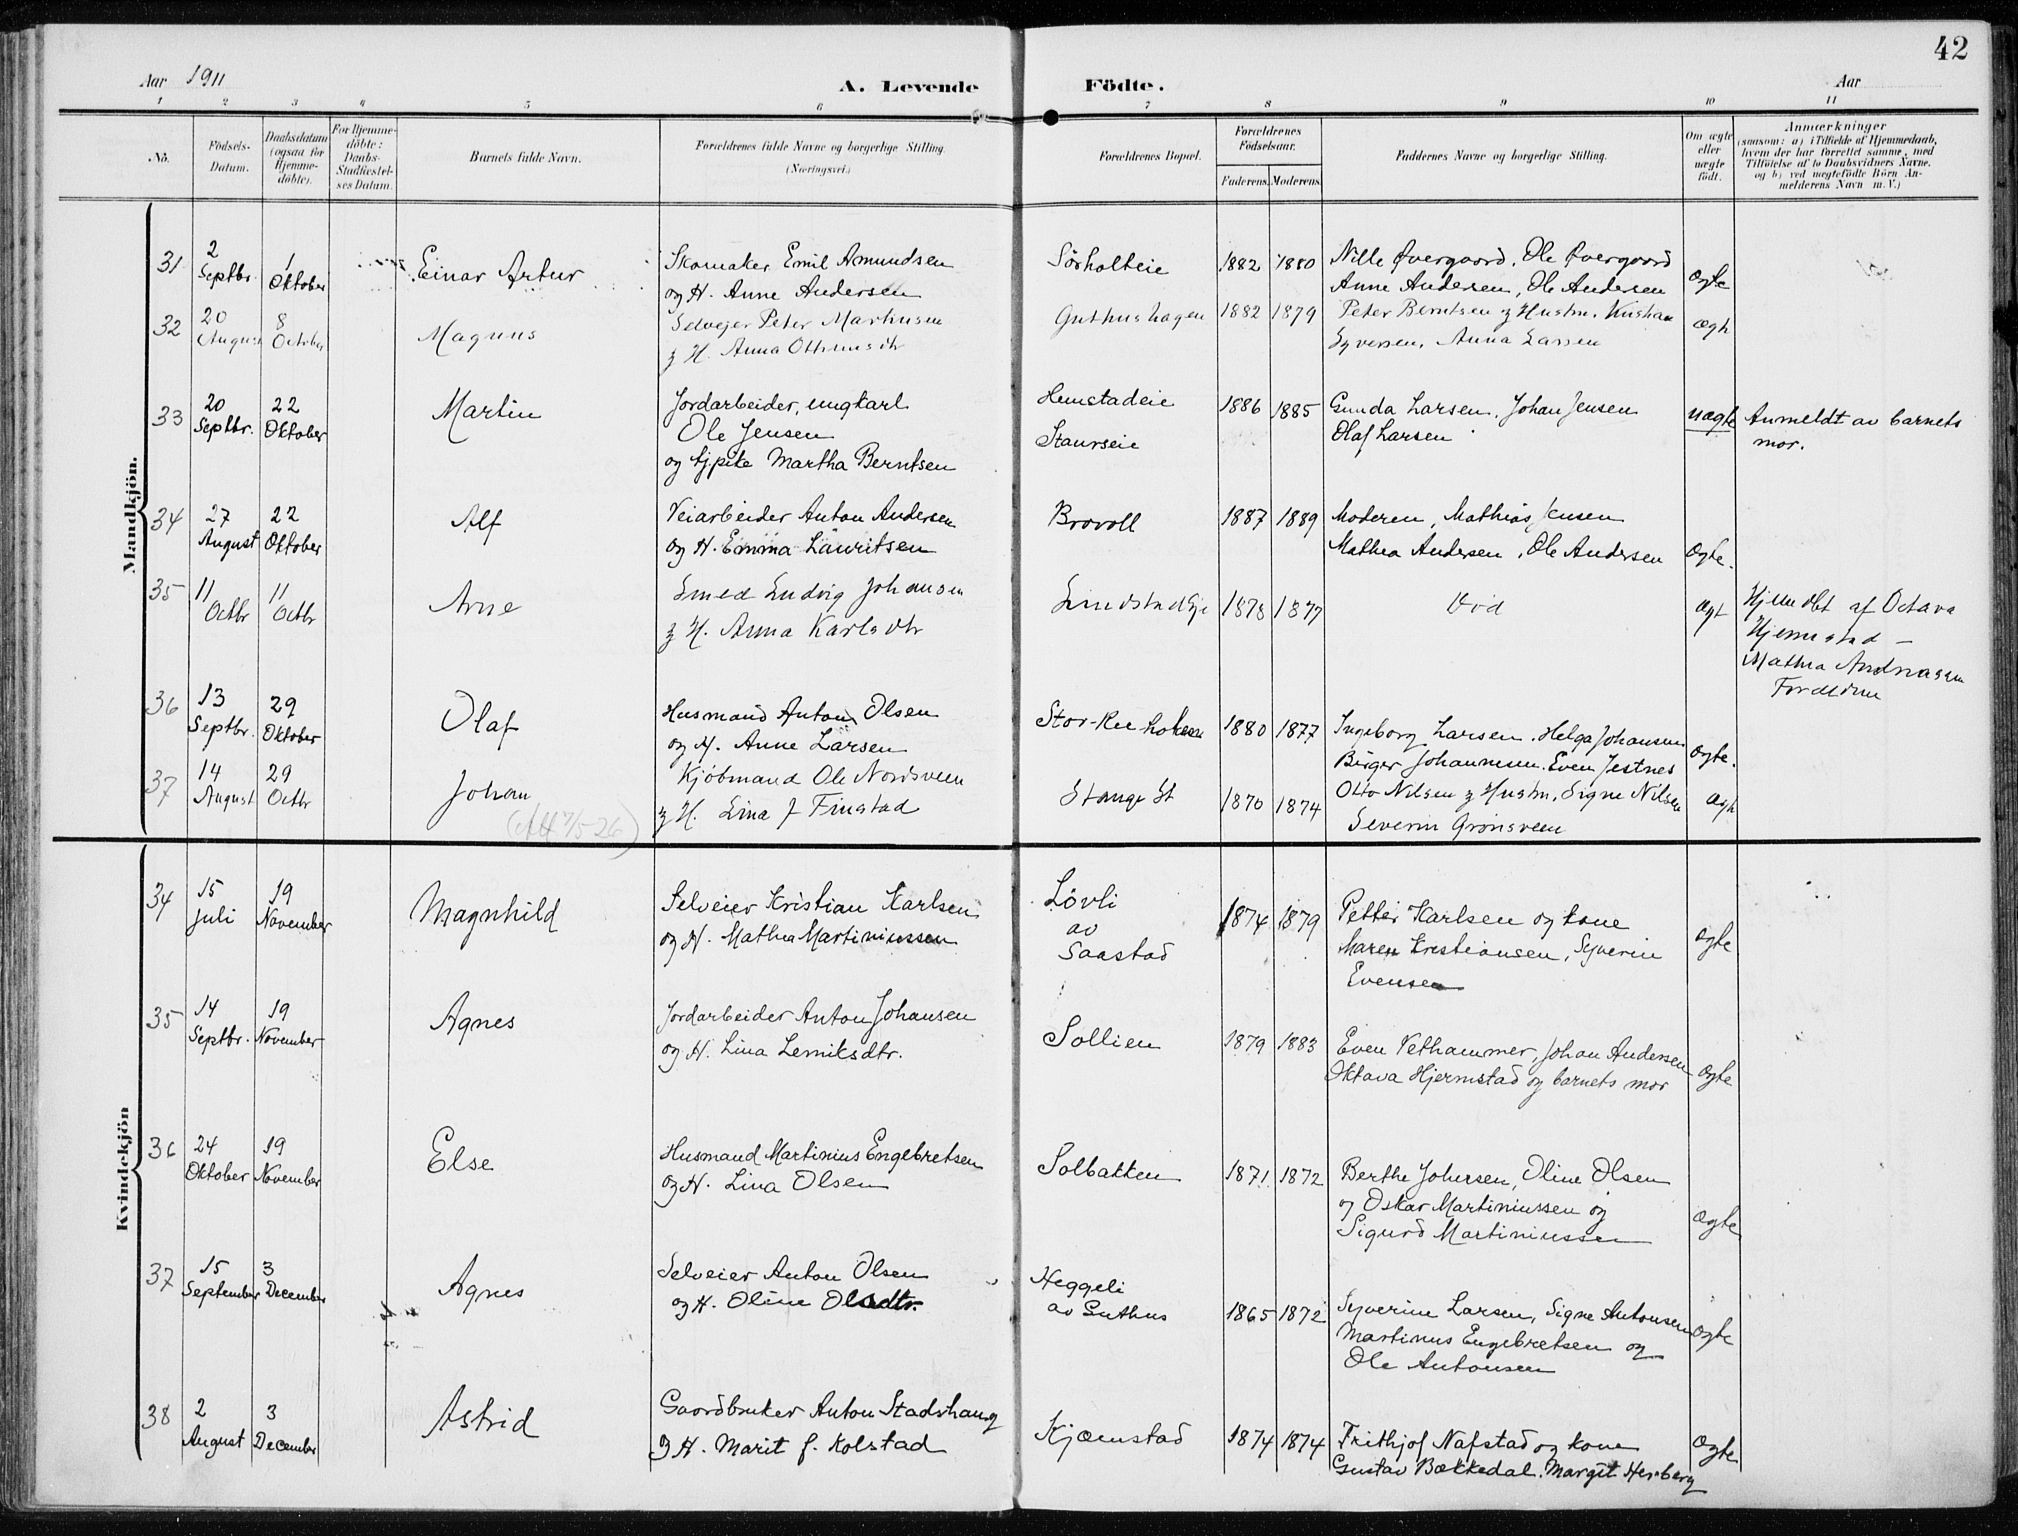 42
Aar 1911
A. Levende Födte.
Aar
1 2 3 4 5 6 7 8 9 10 11
No.
Födsels-
Datum.
Daabsdatum
(ogsaa for
Hjemme-
döbte).
For Hjemme-
döbte:
Daabs-
Stadfæstel-
ses Datum.
Barnets fulde Navn.
Forældrenes fulde Navne og borgerlige Stilling.
(Næringsvei.)
Forældrenes Bopæl.
Forældrenes
Födselsaar.
Faderens. Moderens.
Faddernes Navne og borgerlige Stilling.
Om ægte
eller
uægte
født.
Anmærkninger
(saasom: a) i Tilfælde af Hjemmedaab,
hvem der har forrettet samme, med
Tilföielse af to Daabsvidners Navne.
og b) ved uægtefödte Börn An-
melderens Navn m. V.)
Mandkjön.
31 2 Septbr. 1 Oktober Einar Artur
Skomaker Emil Amundsen
og H. Anne Andersen
Sörholteie 1882 1880
Nille Øvergaard, Ole Øvergaard
Anne Andersen, Ole Andersen
ægte
32 20 August 8 October Magnus
Selvejer Peter Markusen
& H. Anna
Guthushagen 1882 1879
Peter Berntsen & Hustru,
Syversen, Anna Larsen
ægte
33 20 Septbr. 22 Oktober Martin
Jordarbeider, ungkarl
Ole Jensen
og pike Martha Berntsen
Hemstadeie
Staurseie
1886 1885
Gunda Larsen, Johan Jensen
Olaf Larsen
uægte
Anmeldt av barnets
mor.
34 27 August 22 Oktober Alf
Veiarbeider Anton Andersen
og H. Emma Lauritsen
Brovoll 1887 1889
Moderen, Mathias Jensen
Mathea Andersen, Ole Andersen
ægte.
35 11 Octbr 11 Octbr Arne
Smed Ludvig Johansen
& H. Anna Karlsdtr
1878 1877
Död
ægt
Hjemdbt af Octava
Hjemstad –
Mathea Andreasen
36 13 Septbr. 29 Oktober Olaf
Husmand Anton Olsen
og H. Anne Larsen
1880 1877
Ingeborg Larsen, Helga Johansen
Birger Johannesen. Even Jestnes
ægte.
37 14 August 29 Octbr Johan
Kjöbmand Ole Nordsveen
& H. Lina f Finstad
Stange St 1870 1874
Otto Nilsen & Hustru, Signe Nilsen
Severin Grönsveen
ægte
Kvindekjön
34 15 juli 19 November Magnhild
Selveier Kristian Karlsen
og H. Mathea Martiniussen
Lövli
av
Saastad
1874 1879
Petter Karlsen og kone
Maren Kristiansen, Syverin
Evensen
ægte
35 14 Septbr. 19 November Agnes
Jordarbeider Anton Johansen
og H. Lina Lemiksdtr.
Sollien 1879 1883
Even Vethammer, Johan Andersen
Oktava Hjermstad og barnets mor
ægte
36 24 Oktober 19 November Else
Husmand Martinius Engebretsen
og H. Lina Olsen
Solbakken 1871 1872
Berthe Johnsen, Oline Olsen
og Oskar Martiniussen og
Sigurd Martiniussen
ægte
37 15 September 3 December Agnes
Selveier Anton Olsen
og H. Oline Olsdtr.
Heggeli
av Guthus
1865 1872
Syverine Larsen, Signe Antonsen
Martinus Engebretsen og
Ole Antonsen
ægte
38 2 August 3 December Astrid
Gaardbruker Anton Stadshaug
og H. Marit f. Kolstad
Kjæmstad 1874 1874
Frithjof Nafstad og kone
Gustav Bækkedal. Margit Herberg
ægte